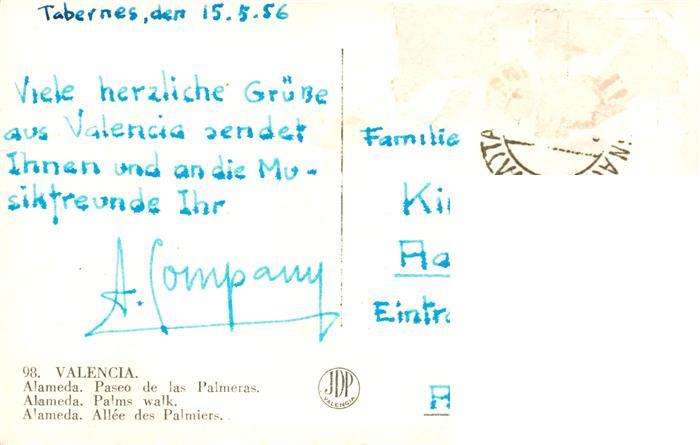 Tabernes, den 15.5.56
Viele herzliche Grüße
aus Valencia sendet
Ihnen und an die Mu-
sikfreunde Ihr
A. Company
Familie
98. VALENCIA.
Alameda. Paseo de las Palmeras.
Alameda. Palms walk.
Alameda. Allée des Palmiers.
JDP
VALENCIA